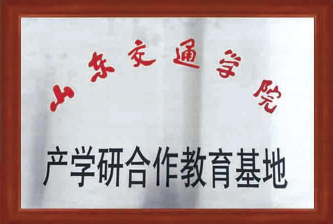 山东交通学院
产学研合作教育基地